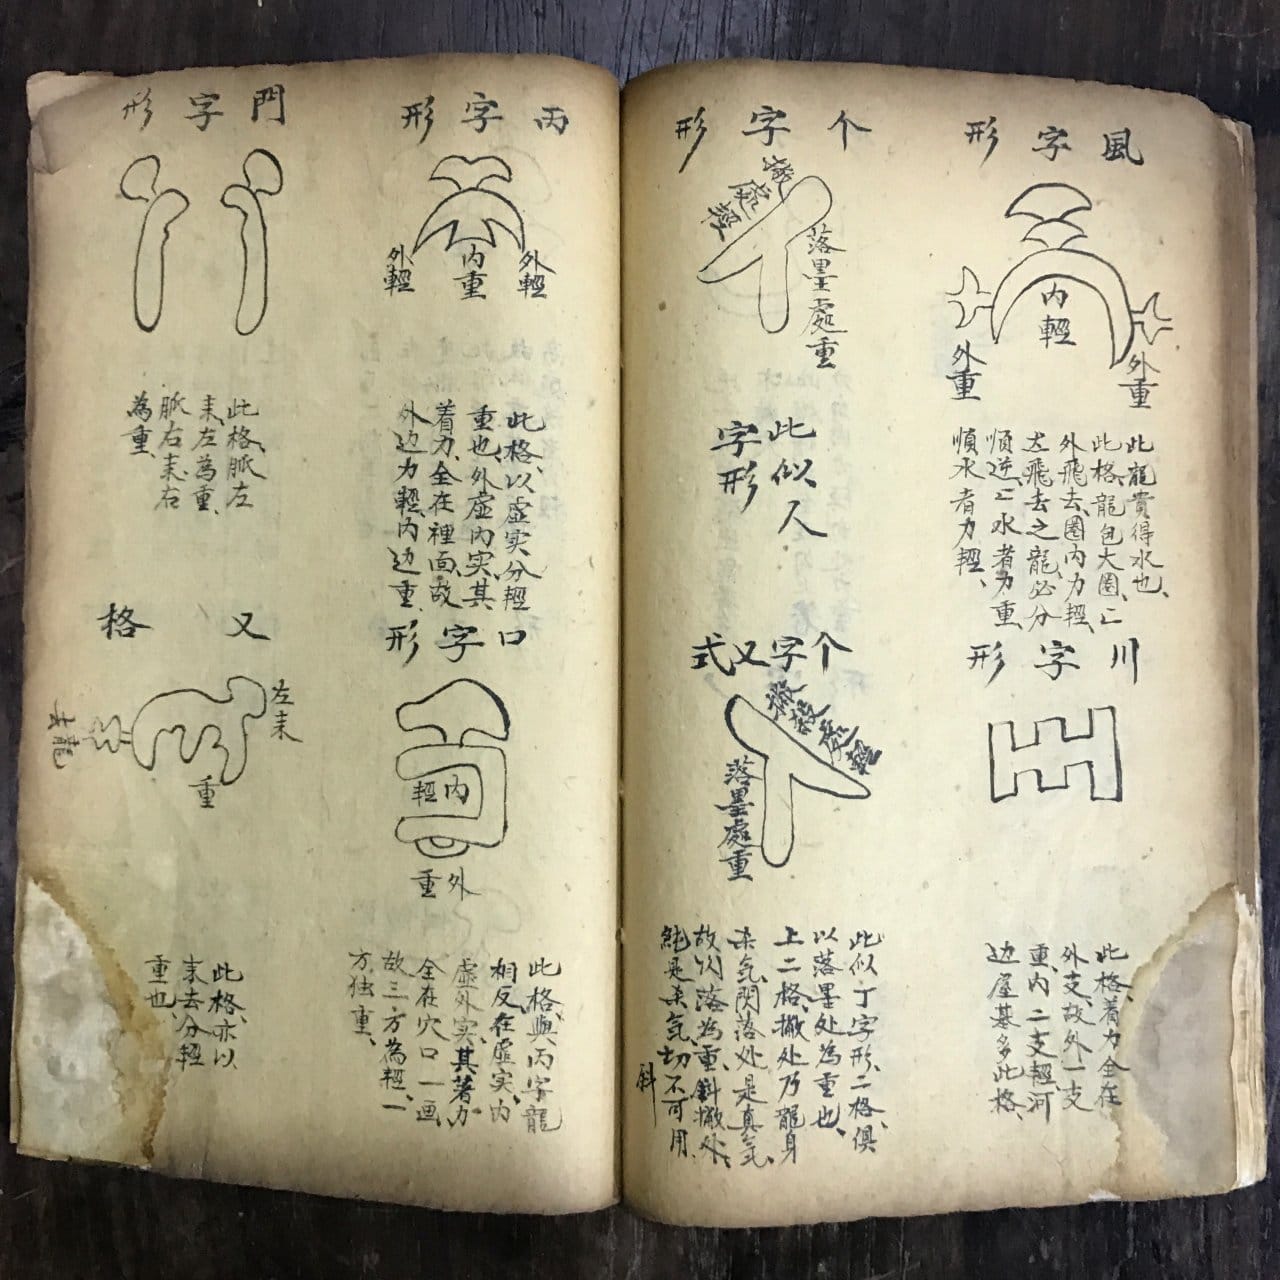 風字形
內輕
外重
外重
此龍貴得水也、
此格龍包大圈、亡
外飛去、圈內力輕、
左飛去之龍、必分
順逆、亡水者力重、
順水者力輕、
川字形
此格、着力全在
外支、故外一支
重、內二支輕、河
边屋基多此格、
个字形
撇處輕
落墨處重
此似人
字形
个字又式
撇殺處輕
落墨處重
此似丁字形、二格俱
以落墨处為重也、
上二格、撇处乃龍身
杀气、閃落处是真气、
故以落為重、斜撇处、
純是杀气、切不可用
斜
丙字形
外輕
內重
外輕
此格、以虛实分輕
重也、外虛內实、其
着力、全在裡面、故
外边力輕、內边重、
口字形
內輕
外重
此格與丙字龍
相反、在虛实、內
虛外实、其著力
全在穴口一画
故三方為輕、一
方独重、
門字形
此格、脈左
耒、左為重、
脈右耒、右
為重、
又格
左耒
去龍
重
此格、亦以
耒去分輕
重也、